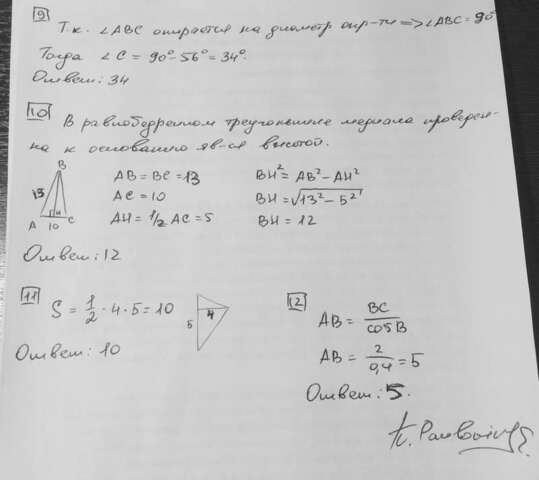 9
Т.к. ∠ABC опирается на диаметр окр-ти => ∠ABC = 90°
Тогда ∠C = 90° - 56° = 34°.
Ответ: 34
10
В равнобедренном треугольнике медиана проведен-
ная к основанию яв-ся высотой.
B
13
A H C
10
AB = BC = 13
AC = 10
AH = 1/2 AC = 5
BH² = AB² - AH²
BH = √13² - 5²
BH = 12
Ответ: 12
11
S = 1/2 · 4 · 5 = 10
5 4
Ответ: 10
12
AB = BC / cosB
AB = 2 / 0,4 = 5
Ответ: 5.